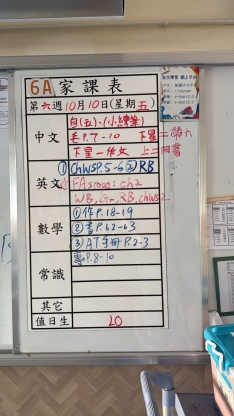 6A 家課表
第六週10月10日(星期五)
中文
自(五)、(小練筆)
毛P.7-10 下星二
下星一作文 上二冊書
英文
① ChWS P.5-6 ② RB
WB, GW, RB, ChWS2
數學
① 作P.18-19
② 書P.62-63
③ AT手冊P.2-3
常識
P.8-10
其它
值日生
20